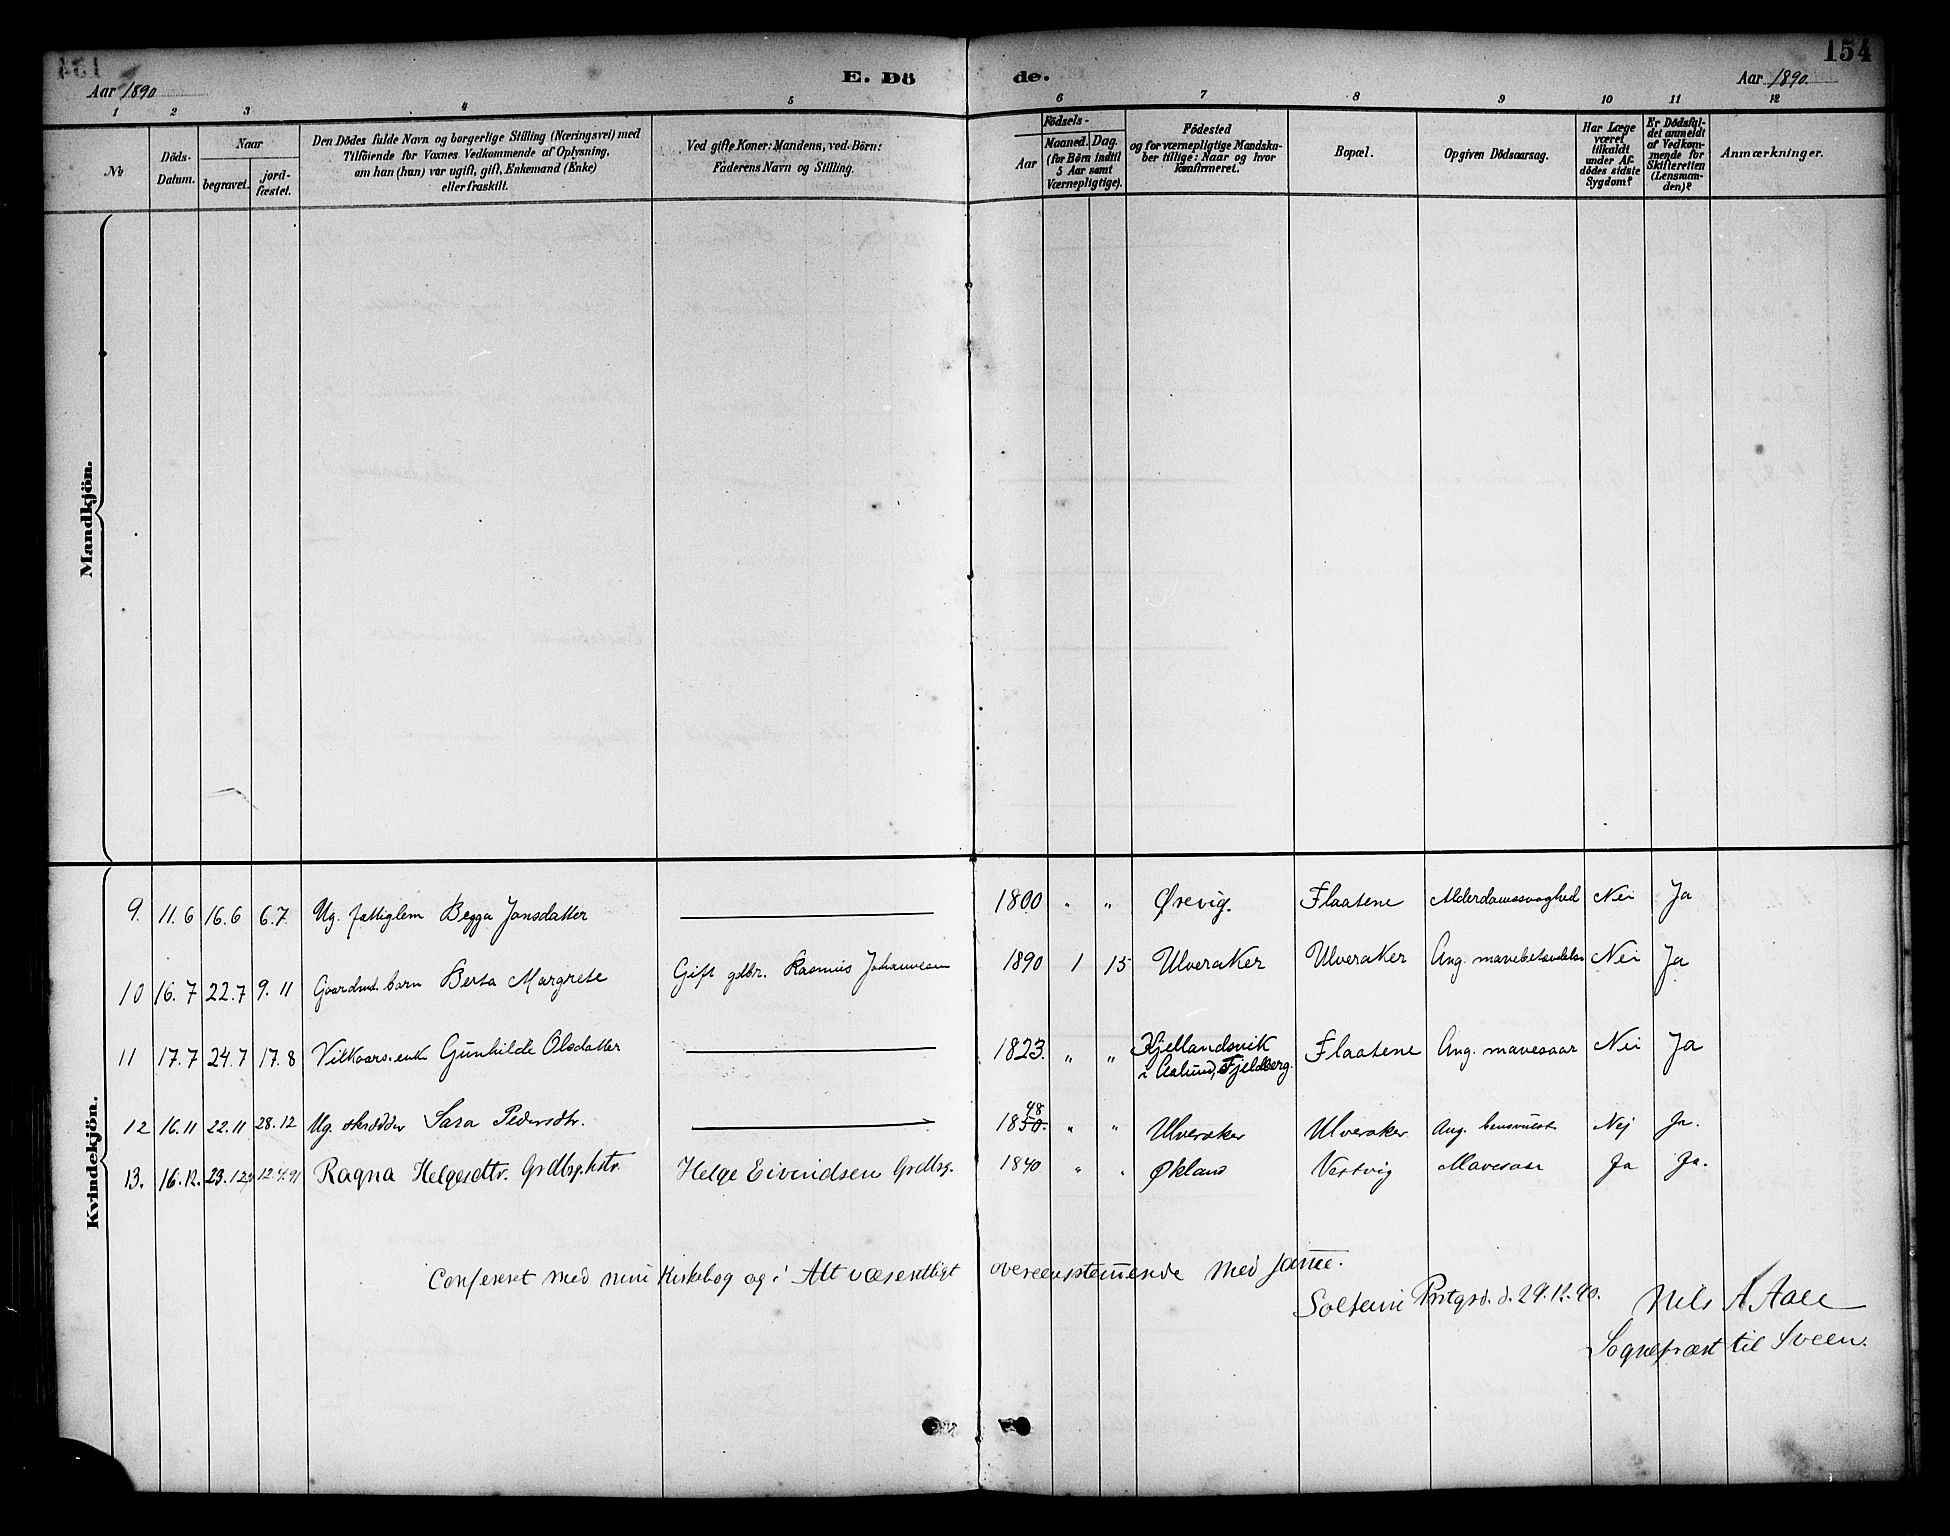 154
E. Dö de.
Aar 1890 Aar 1890.
1 2 3 4 5 6 7 8 9 10 11 12
No
Döds-Datum.
Naar
begravet.
jord-fæstet.
Den Dödes fulde Navn og borgerlige Stilling (Næringsvei) med
Tilföiende for Voxnes Vedkommende af Oplysning,
om han (hun) var ugift, gift, Enkemand (Enke)
eller fraskilt.
Ved gifte Koner: Mandens, ved Börn:
Faderens Navn og Stilling.
Födsels-
Aar
Maaned. Dag.
(for Börn indtil
5 Aar samt
Værnepligtige).
Födested
og for værnepligtige Mandska-
ber tillige: Naar og hvor
konfirmeret.
Bopæl.
Opgiven Dödsaarsag.
Har Læge
været
tilkaldt
under Af-
dödes sidste
Sygdom?
Er Dödsfal-
det anmeldt
af Vedkom-
mende for
Skifteretten
(Lensman-
den)?
Anmærkninger.
Mandkjön.
Kvindekjön.
9. 11.6 16.6 6.7. Ug. fattiglem Begga Jonsdatter 1800 " " Ørevig. Flaatene Alderdomssvaghed Nei Ja
10 16.7 22.7 9.11 Gaardmd. barn Berta Margrete Gift gdbr. Rasmus Johannesen 1890 1 15 Ulveraker Ulveraker Ang. mavebetændelse Nei Ja
11 17.7 24.7 17.8 Vilkaars.enke Gunhilde Olsdatter 1823. " " Kjellandsvik
i Aalund, Fjeldberg. Flaatene Ang. mavesaar Nei Ja
12 16.11 22.11 28.12 Ug. skrædder Sara Pedersdtr. 1850. 48 " " Ulveraker Ulveraker Ang. bensvulst Nej Ja.
13. 16.12. 23.12 12.4.91 Ragna Helgesdtr. Grdbrg.kstr. Helge Eivindsen Grdbrg. 1840 " " Økland Vestvig Mavesaar Ja Ja.
Confereret med min Kirkebog og i Alt væsentligt overeenstemmende med samme.
Prstgrd. d. 29.12.90. Nils A Aall
Sogneprest til Sveen.